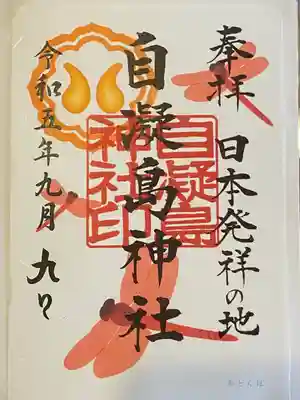 奉拝
日本発祥の地
自凝島神社
自凝島
神社印
令和五年九月九日